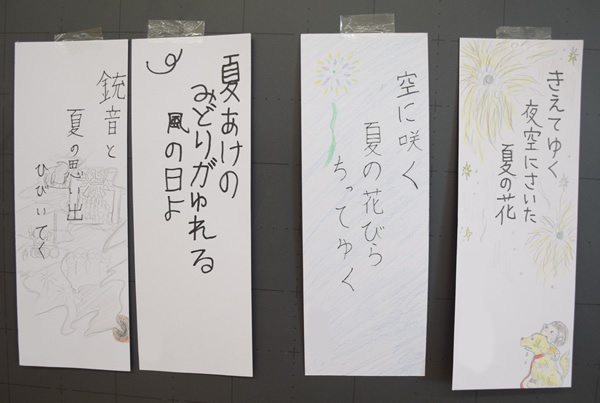 きえてゆく
夜空にさいた
夏の花
空に咲く
夏の花びら
ちってゆく
夏あけの
みどりがゆれる
風の日よ
銃音と
夏の思い出
ひびいてく